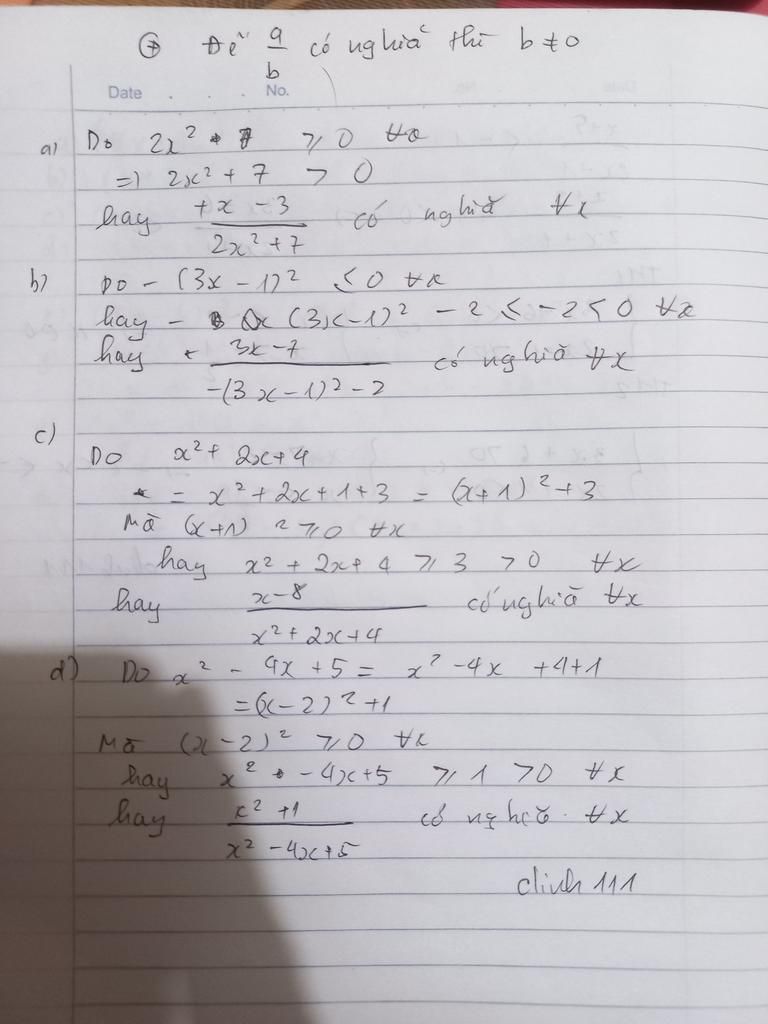 ⊕ Để a/b có nghĩa thì b ≠ 0
Date . . . No.
a) Do 2x² ≥ 0 ∀x
=> 2x² + 7 > 0
hay +x - 3 / 2x² + 7 có nghĩa ∀x
b) Do - (3x - 1)² ≤ 0 ∀x
hay - (3x - 1)² - 2 ≤ -2 < 0 ∀x
hay 3x - 7 / -(3x - 1)² - 2 có nghĩa ∀x
c) Do x² + 2x + 4
= x² + 2x + 1 + 3 = (x + 1)² + 3
Mà (x + 1)² ≥ 0 ∀x
hay x² + 2x + 4 ≥ 3 > 0 ∀x
hay x - 8 / x² + 2x + 4 có nghĩa ∀x
d) Do x² - 4x + 5 = x² - 4x + 4 + 1
= (x - 2)² + 1
Mà (x - 2)² ≥ 0 ∀x
hay x² - 4x + 5 ≥ 1 > 0 ∀x
hay x² + 1 / x² - 4x + 5 có nghĩa ∀x
dinh 111